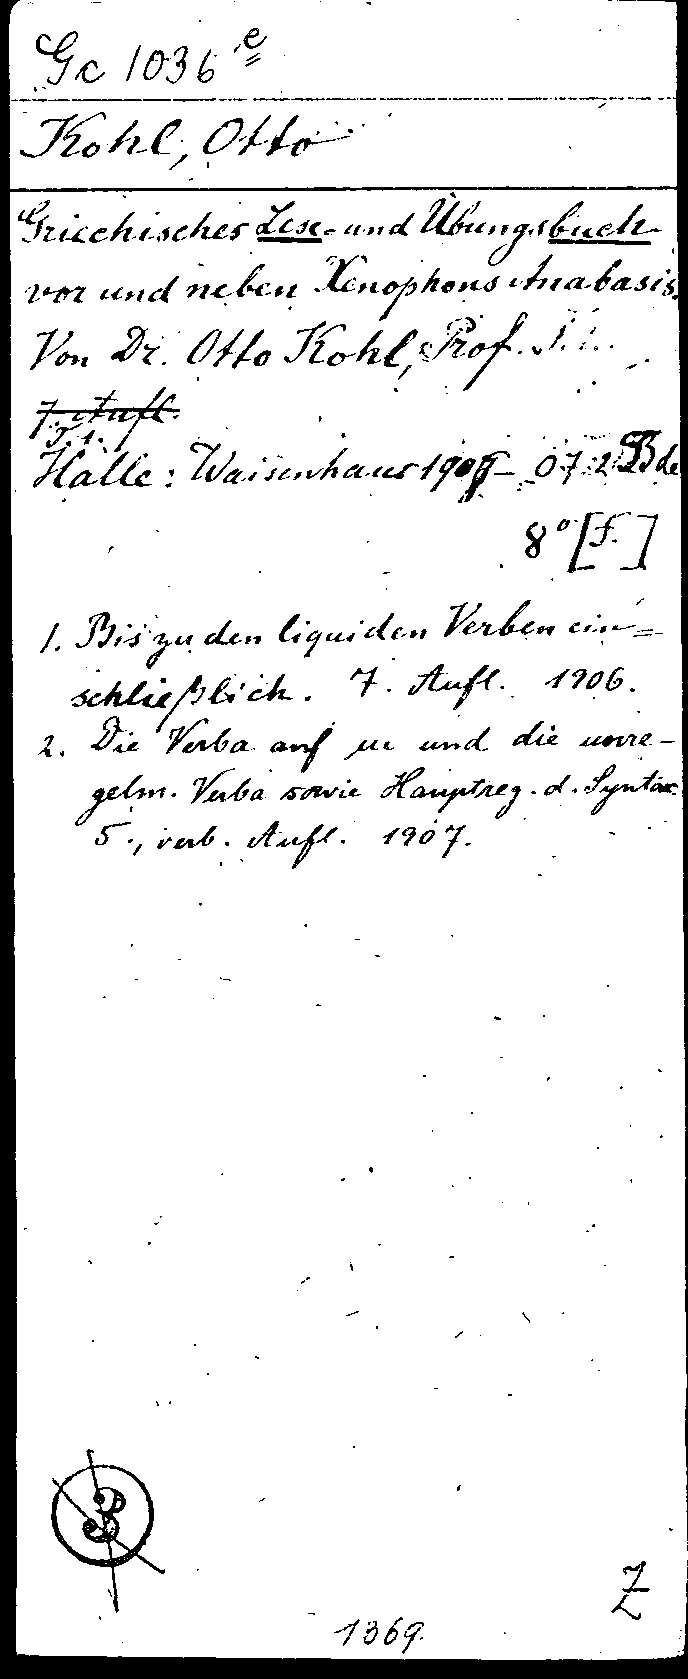 Gc 1036 e
Kohl, Otto
Griechisches Lese- und Übungsbuch
vor und neben Xenophons Anabasis.
Von Dr. Otto Kohl, Prof.
7. Aufl.
T. 1.
Halle: Waisenhaus 1906-07. 2 Bde
8° [f. ]
1. Bis zu den liquiden Verben ein=
schließlich. 7. Aufl. 1906.
2. Die Verba auf μι und die unre-
gelm. Verba sowie Hauptreg. d. Syntax.
5., verb. Aufl. 1907.
3
Z
1369.